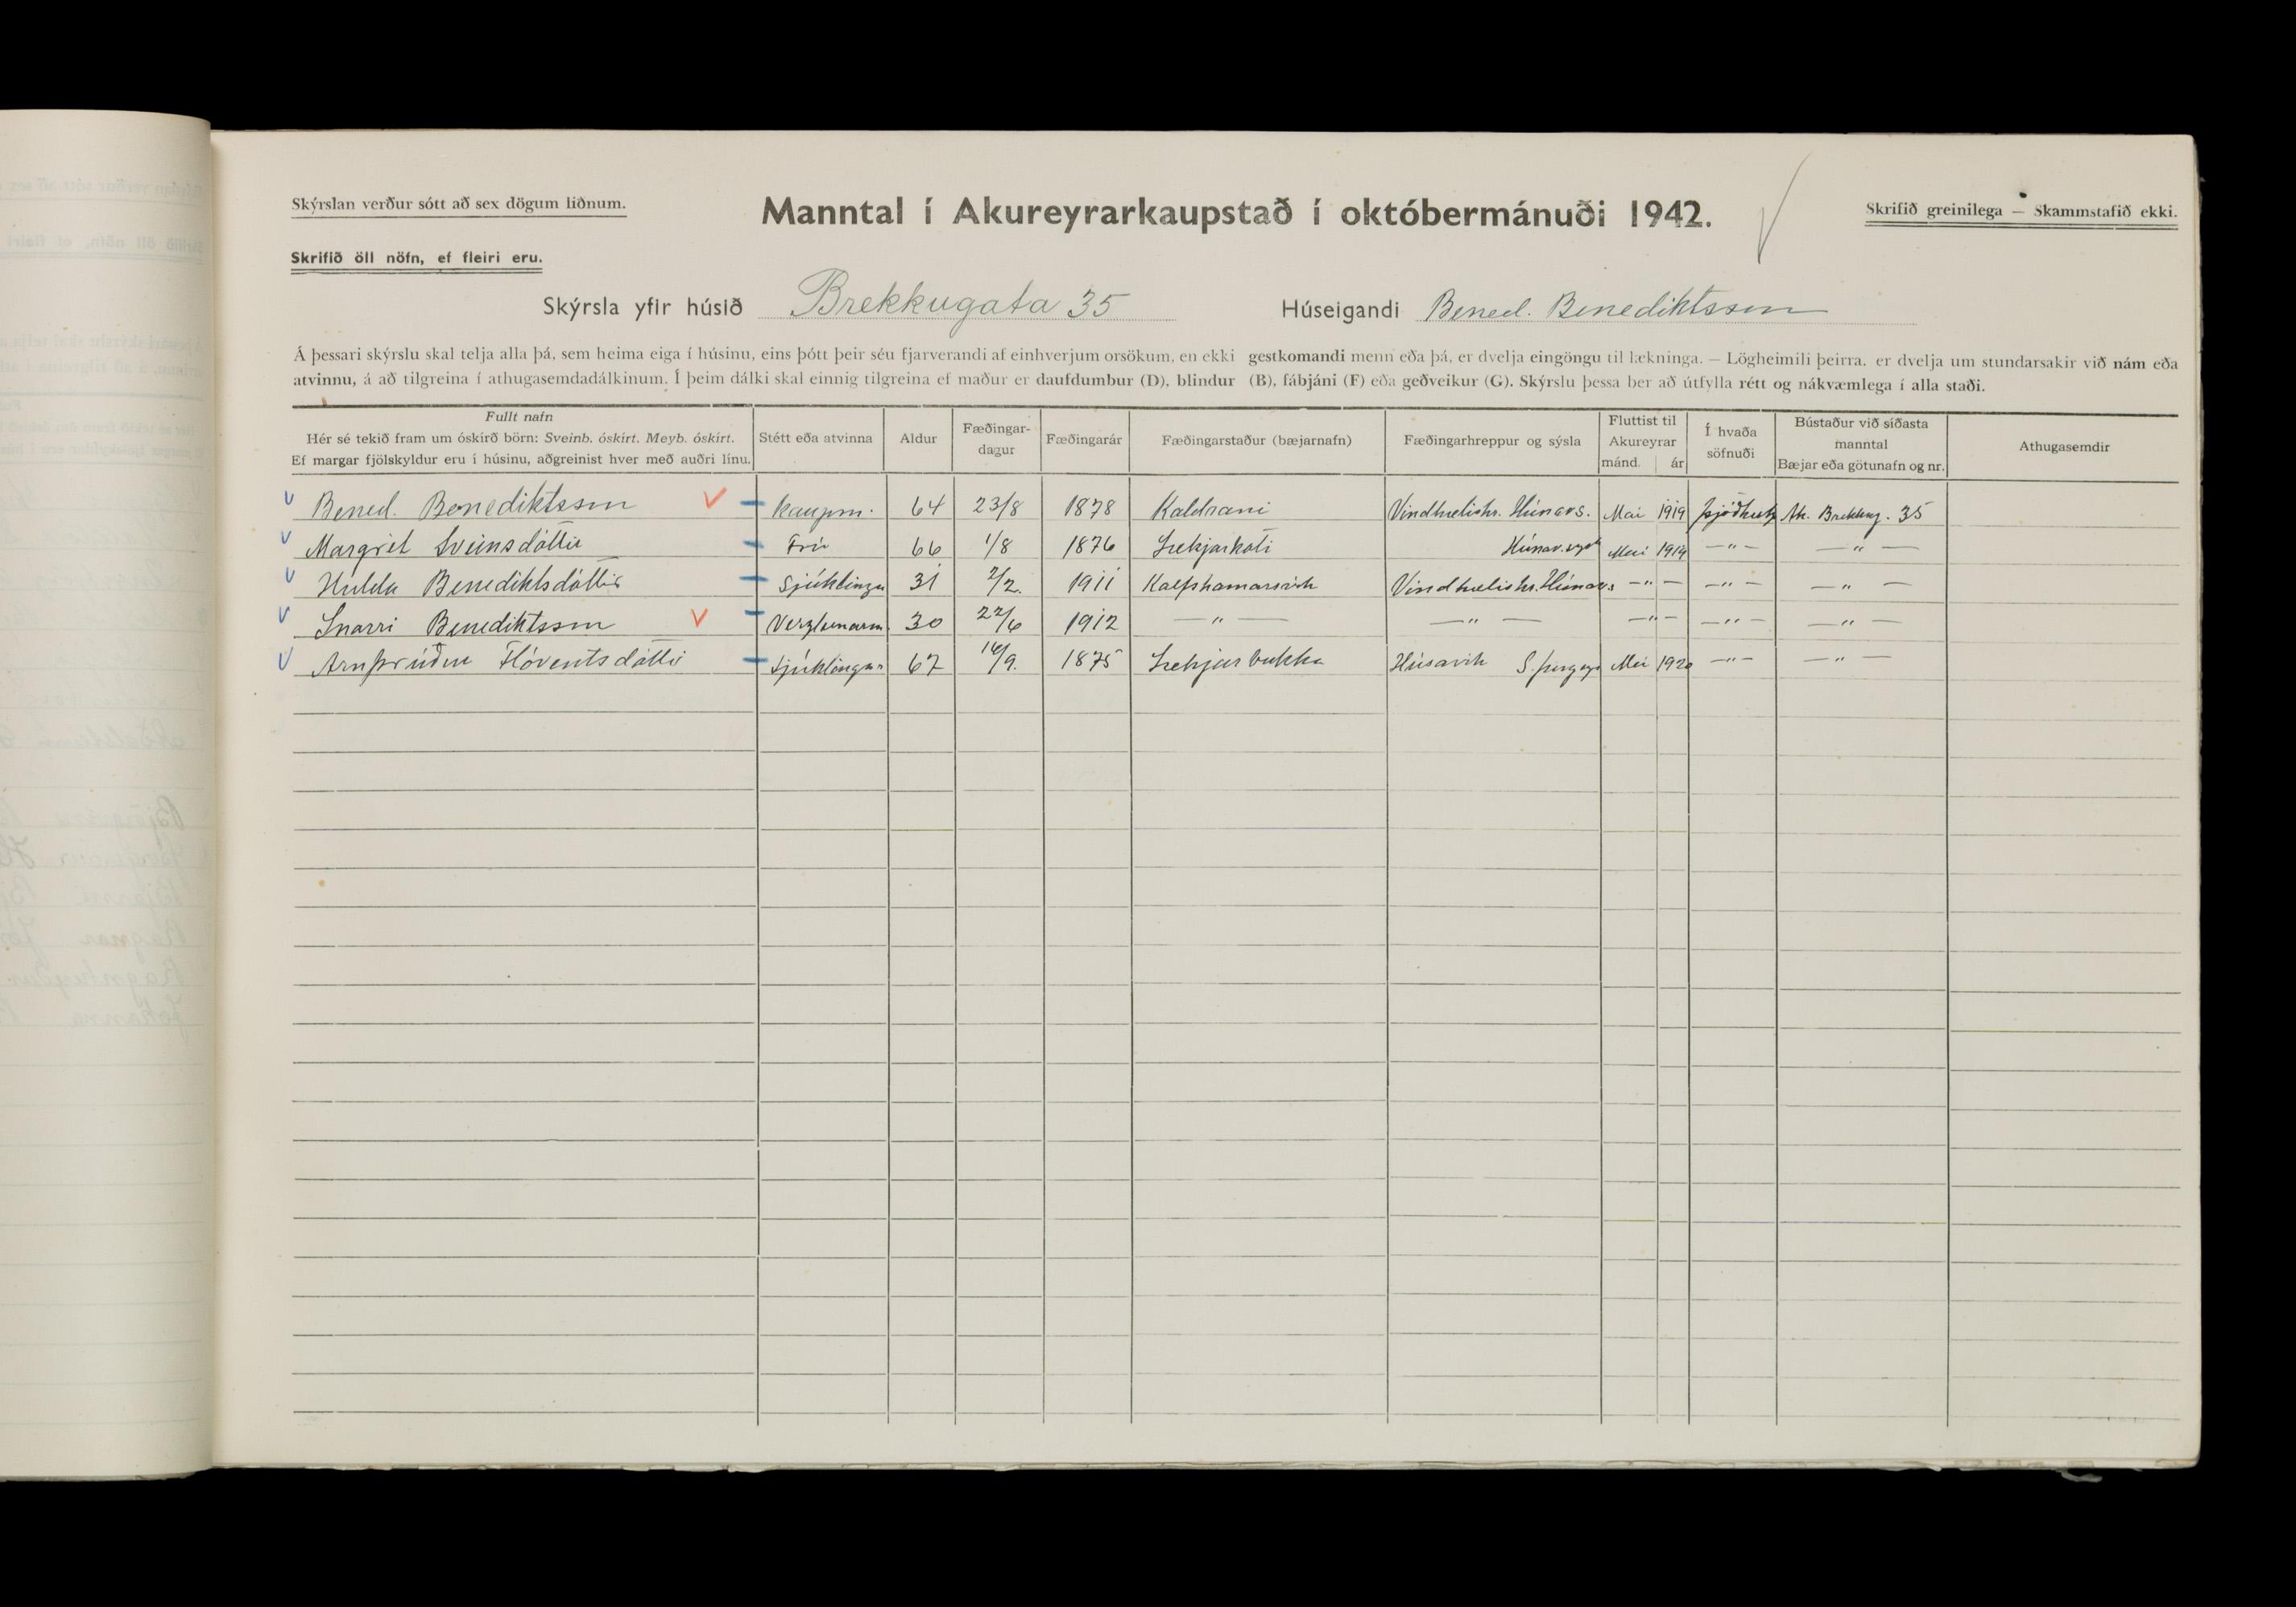 Skýrslan verður sótt að sex dögum liðnum.
Manntal í Akureyrarkaupstað í októbermánuði 1942.
Skrifið greinilega — Skammstafið ekki.
Skrifið öll nöfn, ef fleiri eru.
Skýrsla yfir húsið Brekkugata 35 Húseigandi Bened. Benediktsson
Á þessari skýrslu skal telja alla þá, sem heima eiga í húsinu, eins þótt þeir séu fjarverandi af einhverjum orsökum, en ekki gestkomandi menn eða þá, er dvelja eingöngu til lækninga. — Lögheimili þeirra, er dvelja um stundarsakir við nám eða
atvinnu, á að tilgreina í athugasemdadálkinum. Í þeim dálki skal einnig tilgreina ef maður er daufdumbur (D), blindur (B), fábjáni (F) eða geðveikur (G). Skýrslu þessa ber að útfylla rétt og nákvæmlega í alla staði.
Fullt nafn
Hér sé tekið fram um óskírð börn: Sveinb. óskírt. Meyb. óskírt.
Ef margar fjölskyldur eru í húsinu, aðgreinist hver með auðri línu.
Stétt eða atvinna
Aldur
Fæðingar-
dagur
Fæðingarár
Fæðingarstaður (bæjarnafn)
Fæðingarhreppur og sýsla
Fluttist til
Akureyrar
mánd. ár
Í hvaða
söfnuði
Bústaður við síðasta
manntal
Bæjar eða götunafn og nr.
Athugasemdir
Bened. Benediktsson kaupm. 64 23/8 1878 Kaldrani Vindhælishr. Húnavs. Mai 1919 Ak. Brekkug. 35
Margrét Sveinsdóttir Frú 66 1/8 1876 Lækjarkoti Húnav.sysl Mai 1919 —"— —"—
Hulda Benediktsdóttir Sjúklingur 31 2/2. 1911 Kalfshamarsvik Vindhælishr. Húnavs —"— —"— —"—
Snorri Benediktsson Verzlunarm. 30 22/6 1912 —"— —"— —"— —"— —"—
Arnþrúður Flóventsdóttir Sjúklingur 67 /9. 1875 Húsavik Mai 1920 —"— —"—